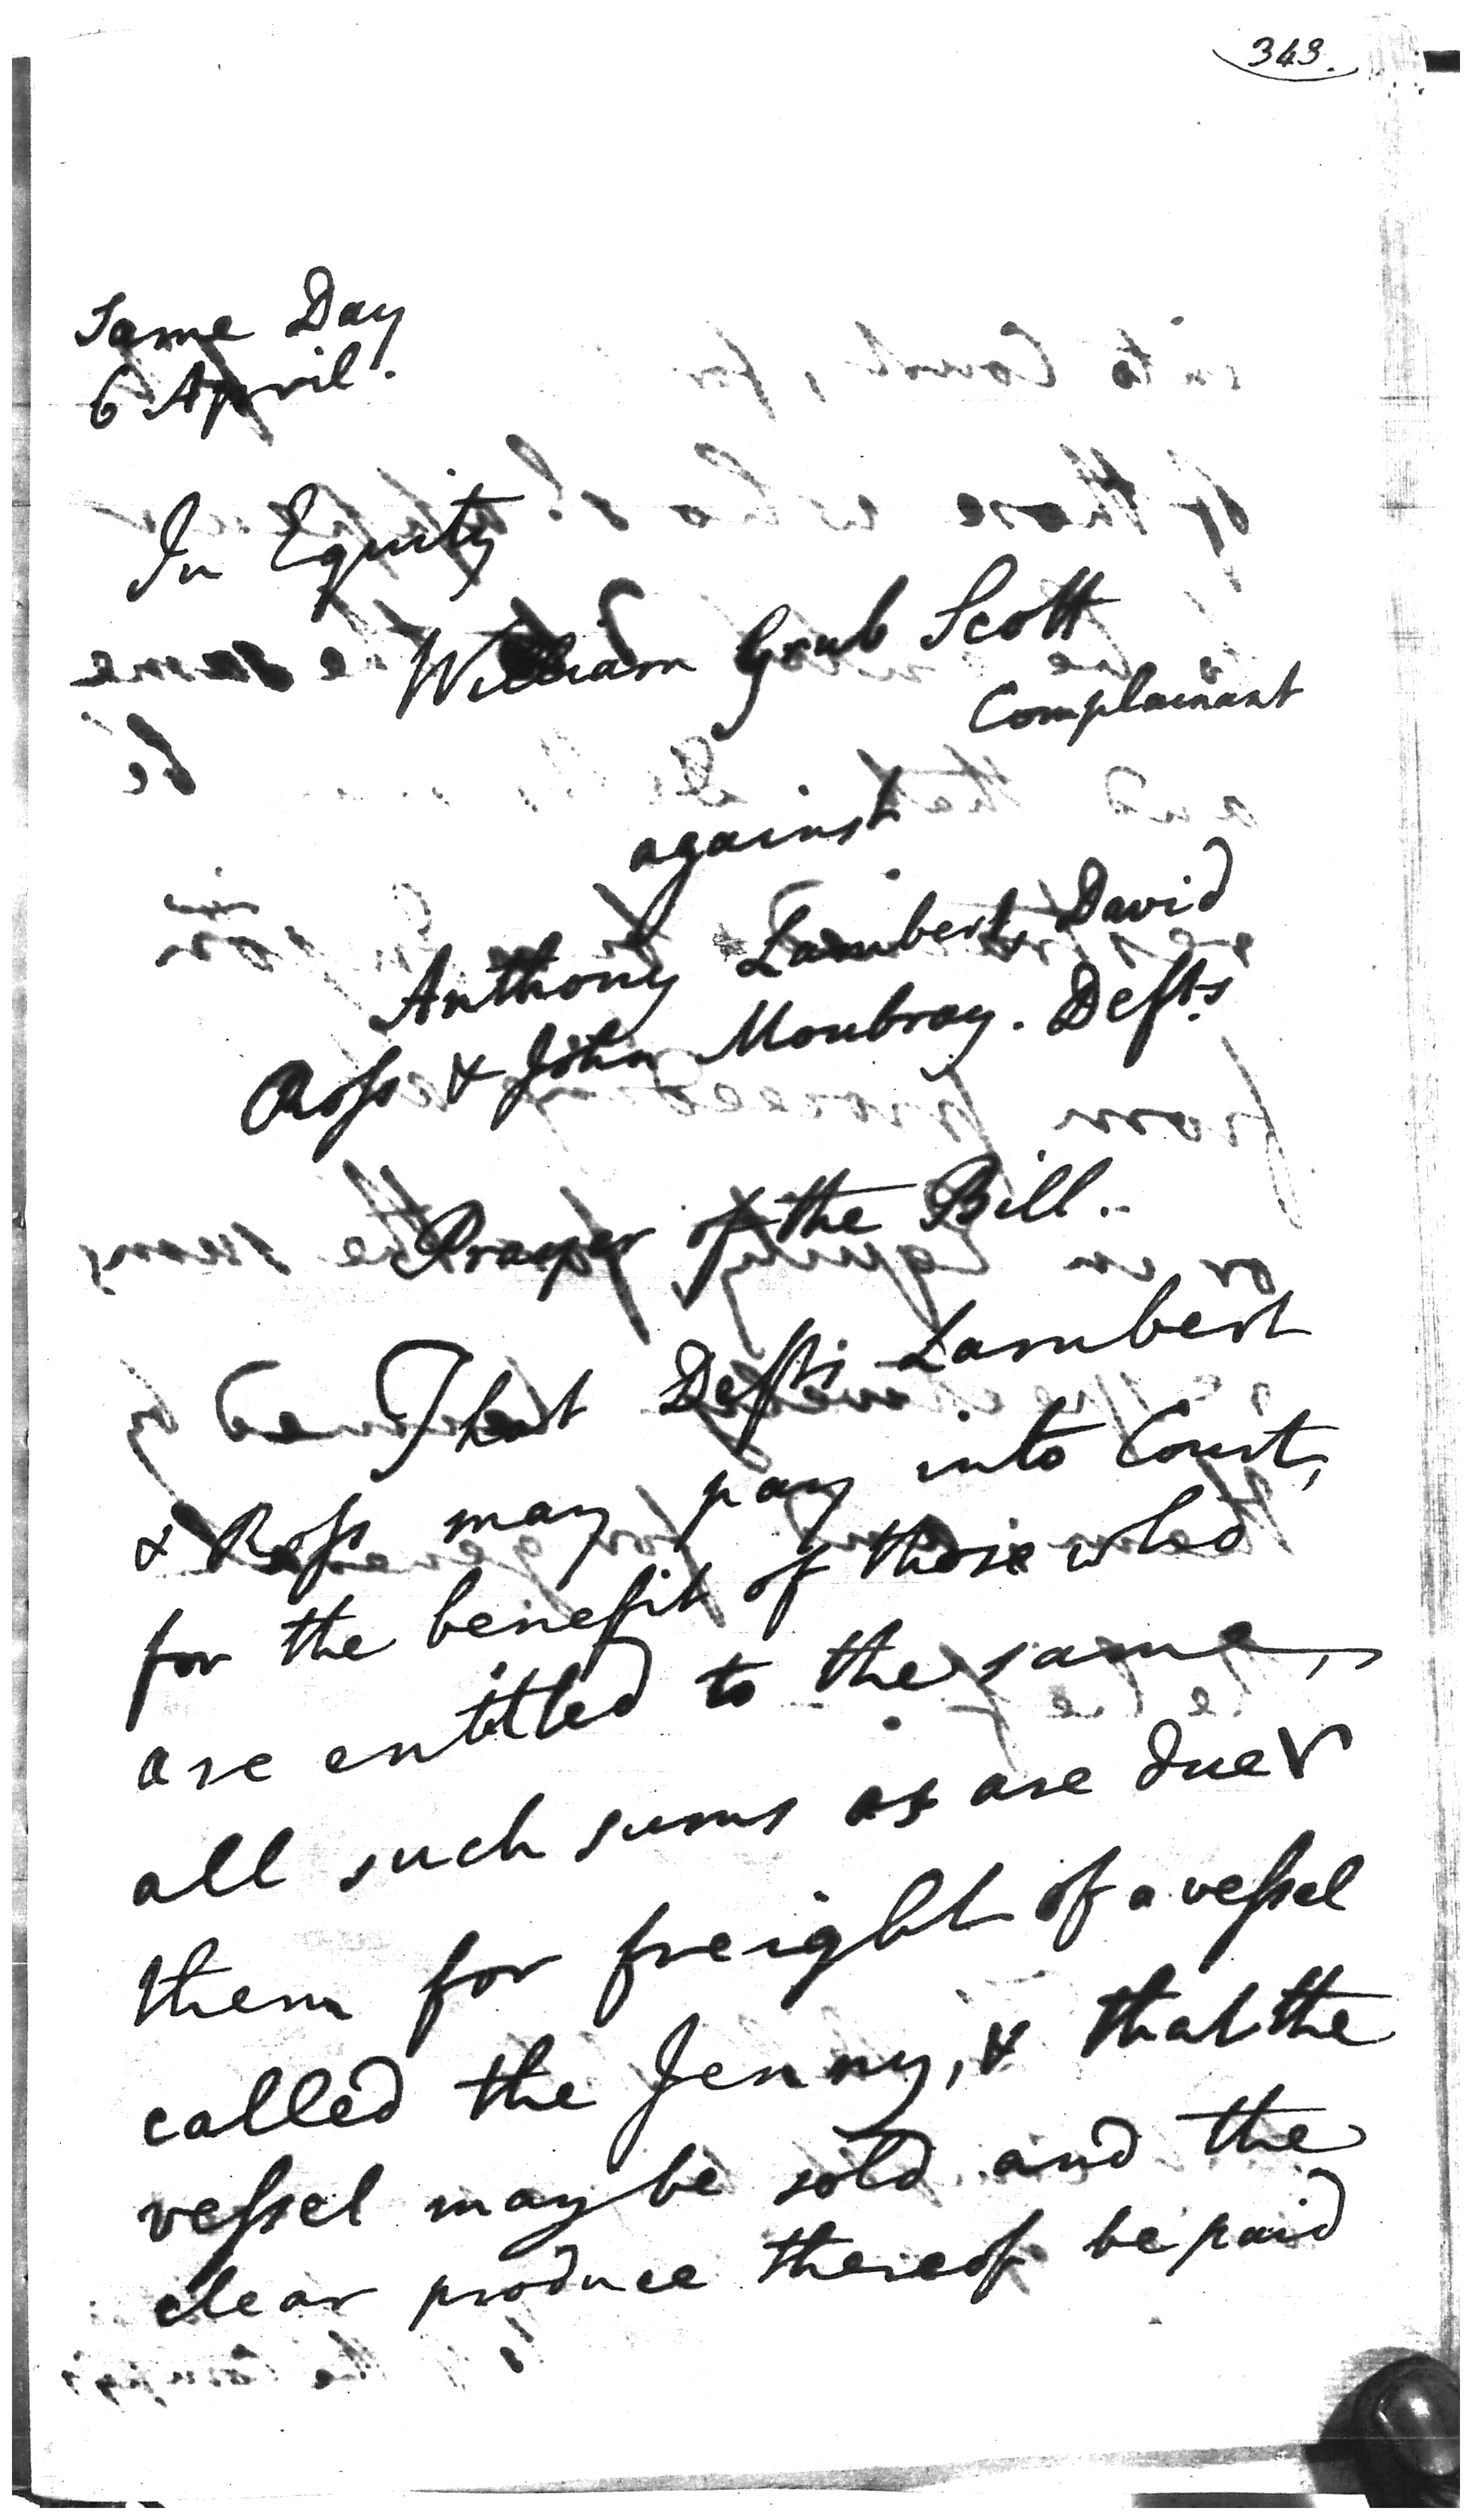 343.
Same Day
6 April.
In Equity
William Grub Scott
Complainant
against
Anthony Lambert, David
Ross & John Moubray. Defts
Prayer of the Bill..
That Defts Lambert
& Ross may pay into Court,
for the benefit of those who
are entitled to the same,
all such sums as are due
them for freight of a vessel
called the Jenny, & that the
vessel may be sold and the
clear produce thereof be paid